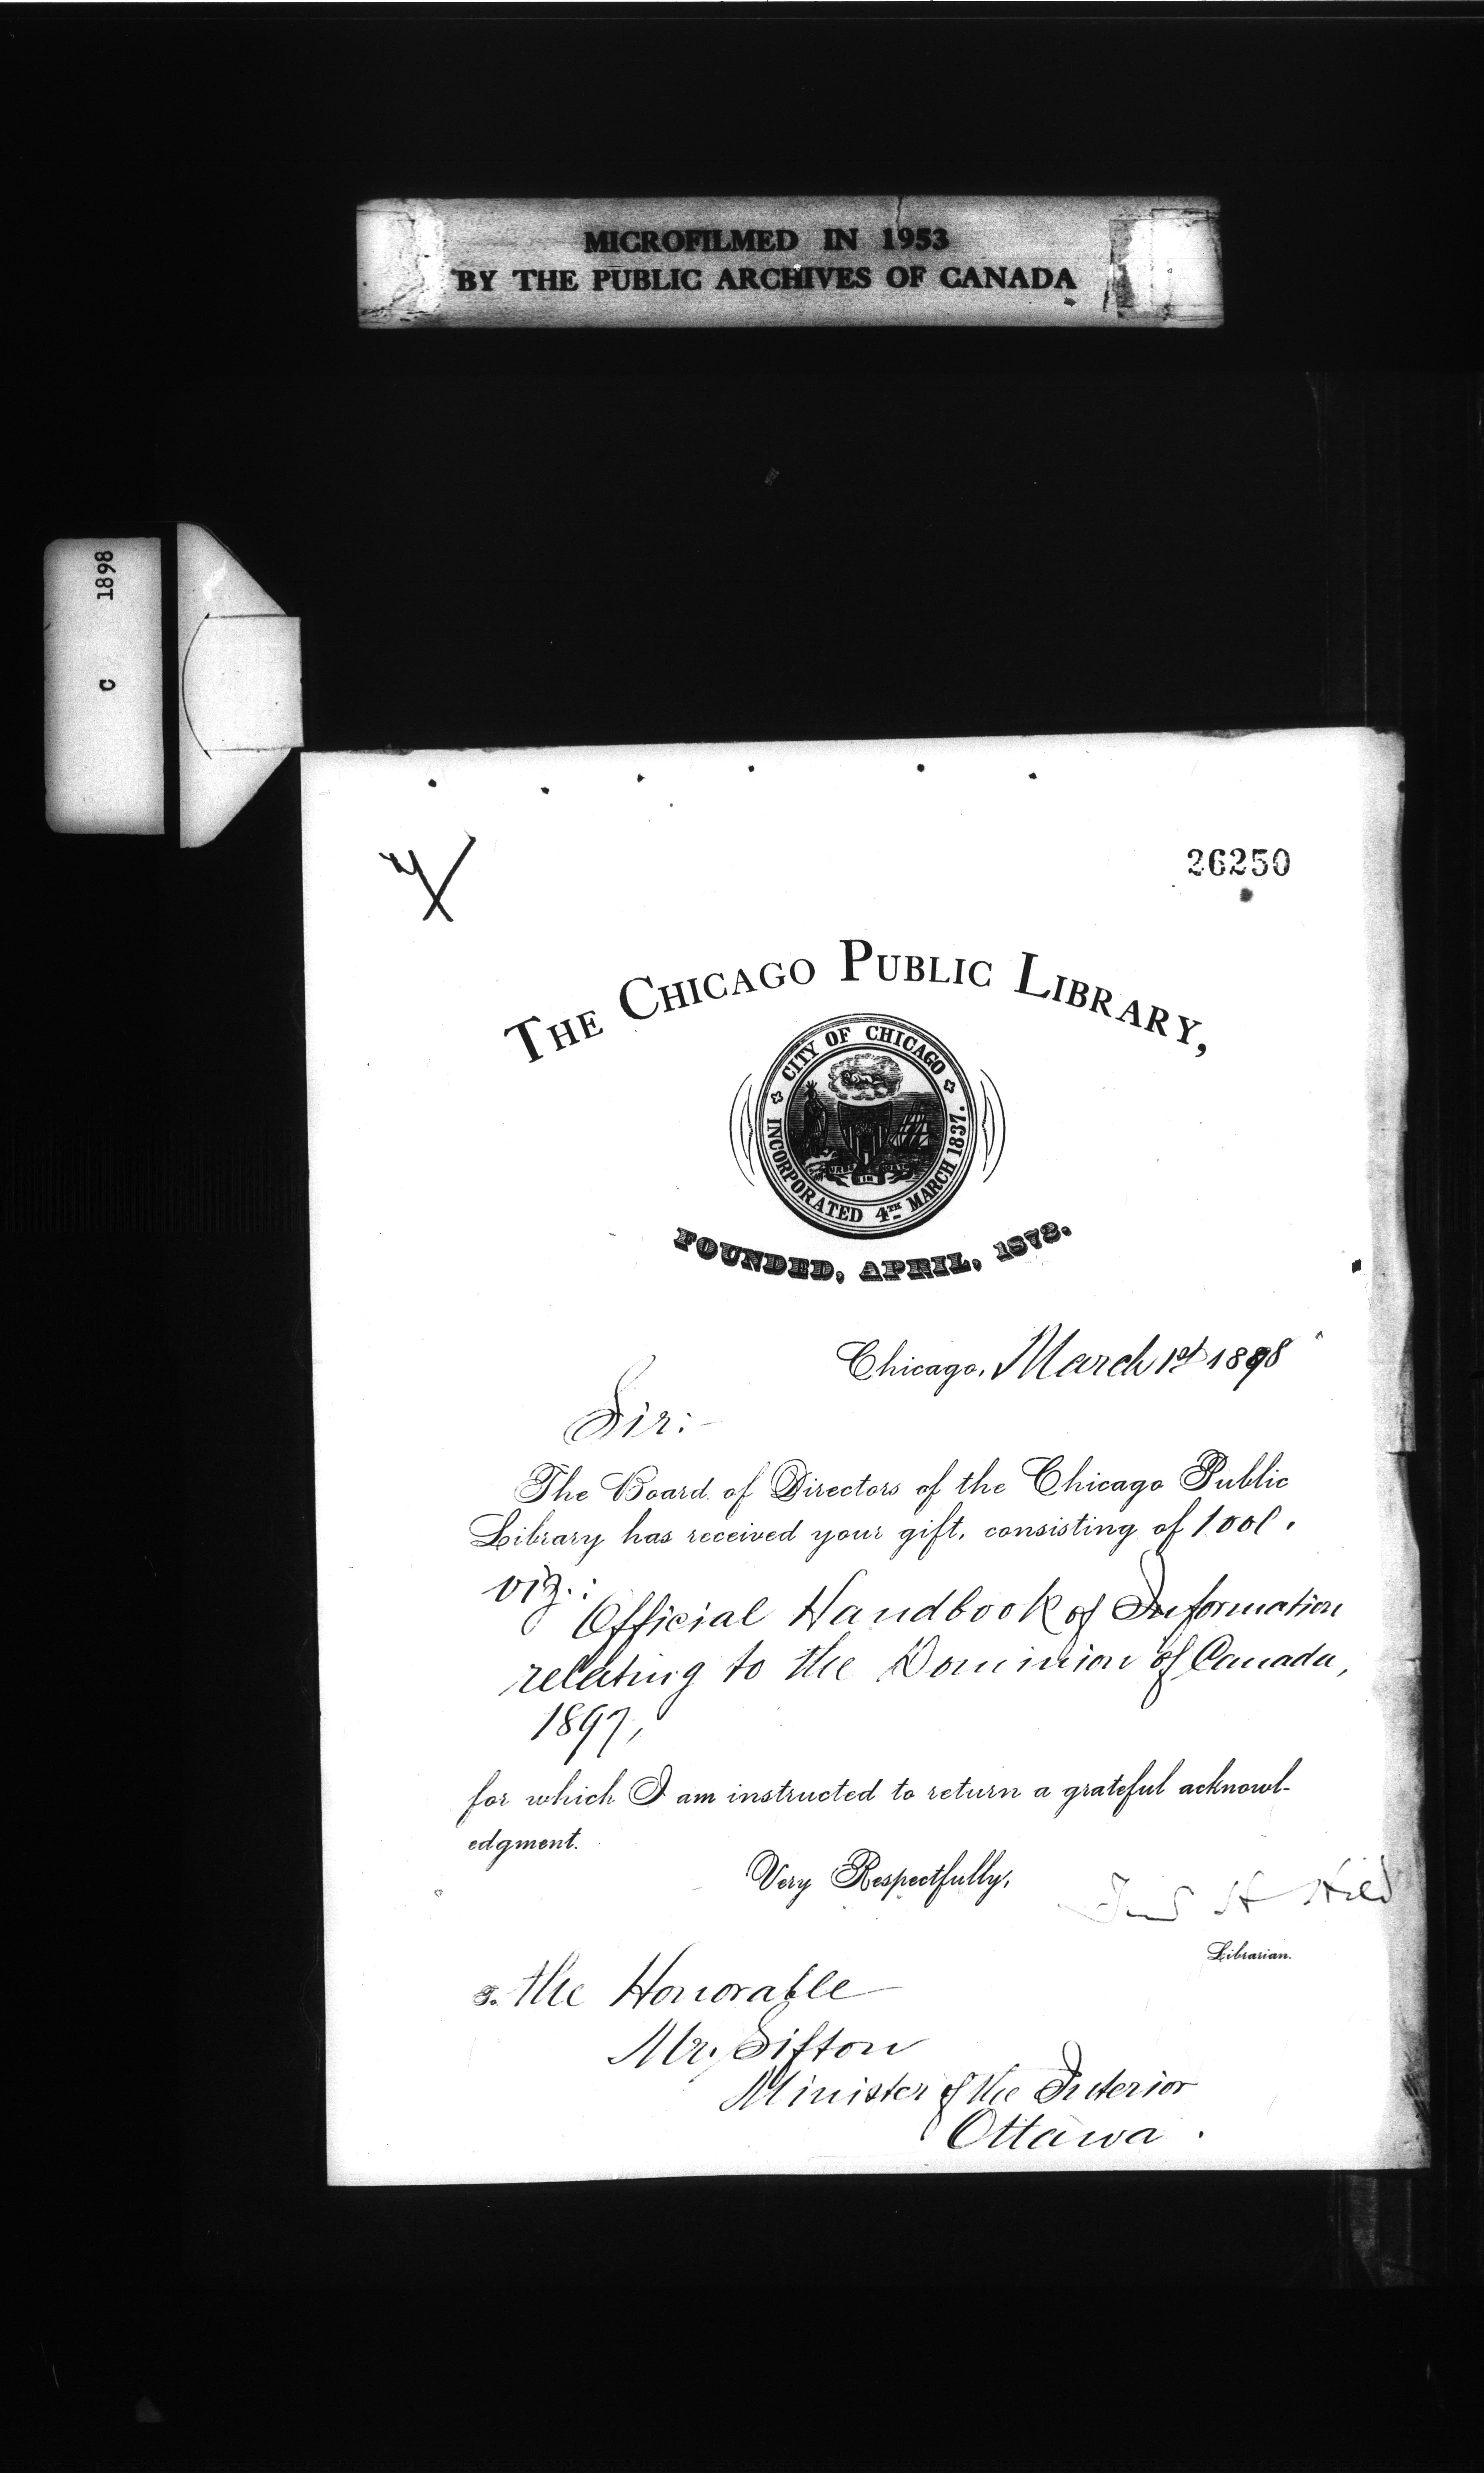 MICROFILMED IN 1953
BY THE PUBLIC ARCHIVES OF CANADA
C 1898
26250
THE CHICAGO PUBLIC LIBRARY,
CITY OF CHICAGO
INCORPORATED 4TH MARCH 1837.
URBS IN HORTO
FOUNDED, APRIL, 1872.
Chicago, March 1st 1898
Sir:-
The Board of Directors of the Chicago Public
Library has received your gift, consisting of 1 vol.
viz.:
Official Handbook of Information
relating to the Dominion of Canada,
1897,
for which I am instructed to return a grateful acknowl-
edgment.
Very Respectfully,
H Hild
Librarian.
To the Honorable
Mr. Sifton
Minister of the Interior
Ottawa.